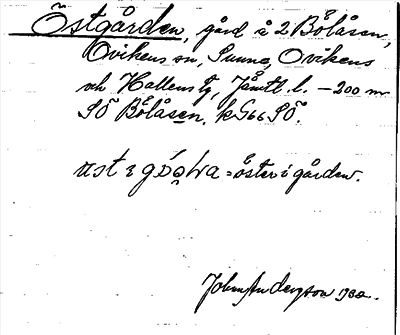 Östgården, gård å 2 Bölåsen,
Ovikens sn, Sunne, Ovikens
och Hallens tg, Jämtl. l. – 200 m
SÖ Bölåsen. kG66 SÖ.
= öster i gården.
John Anderzson